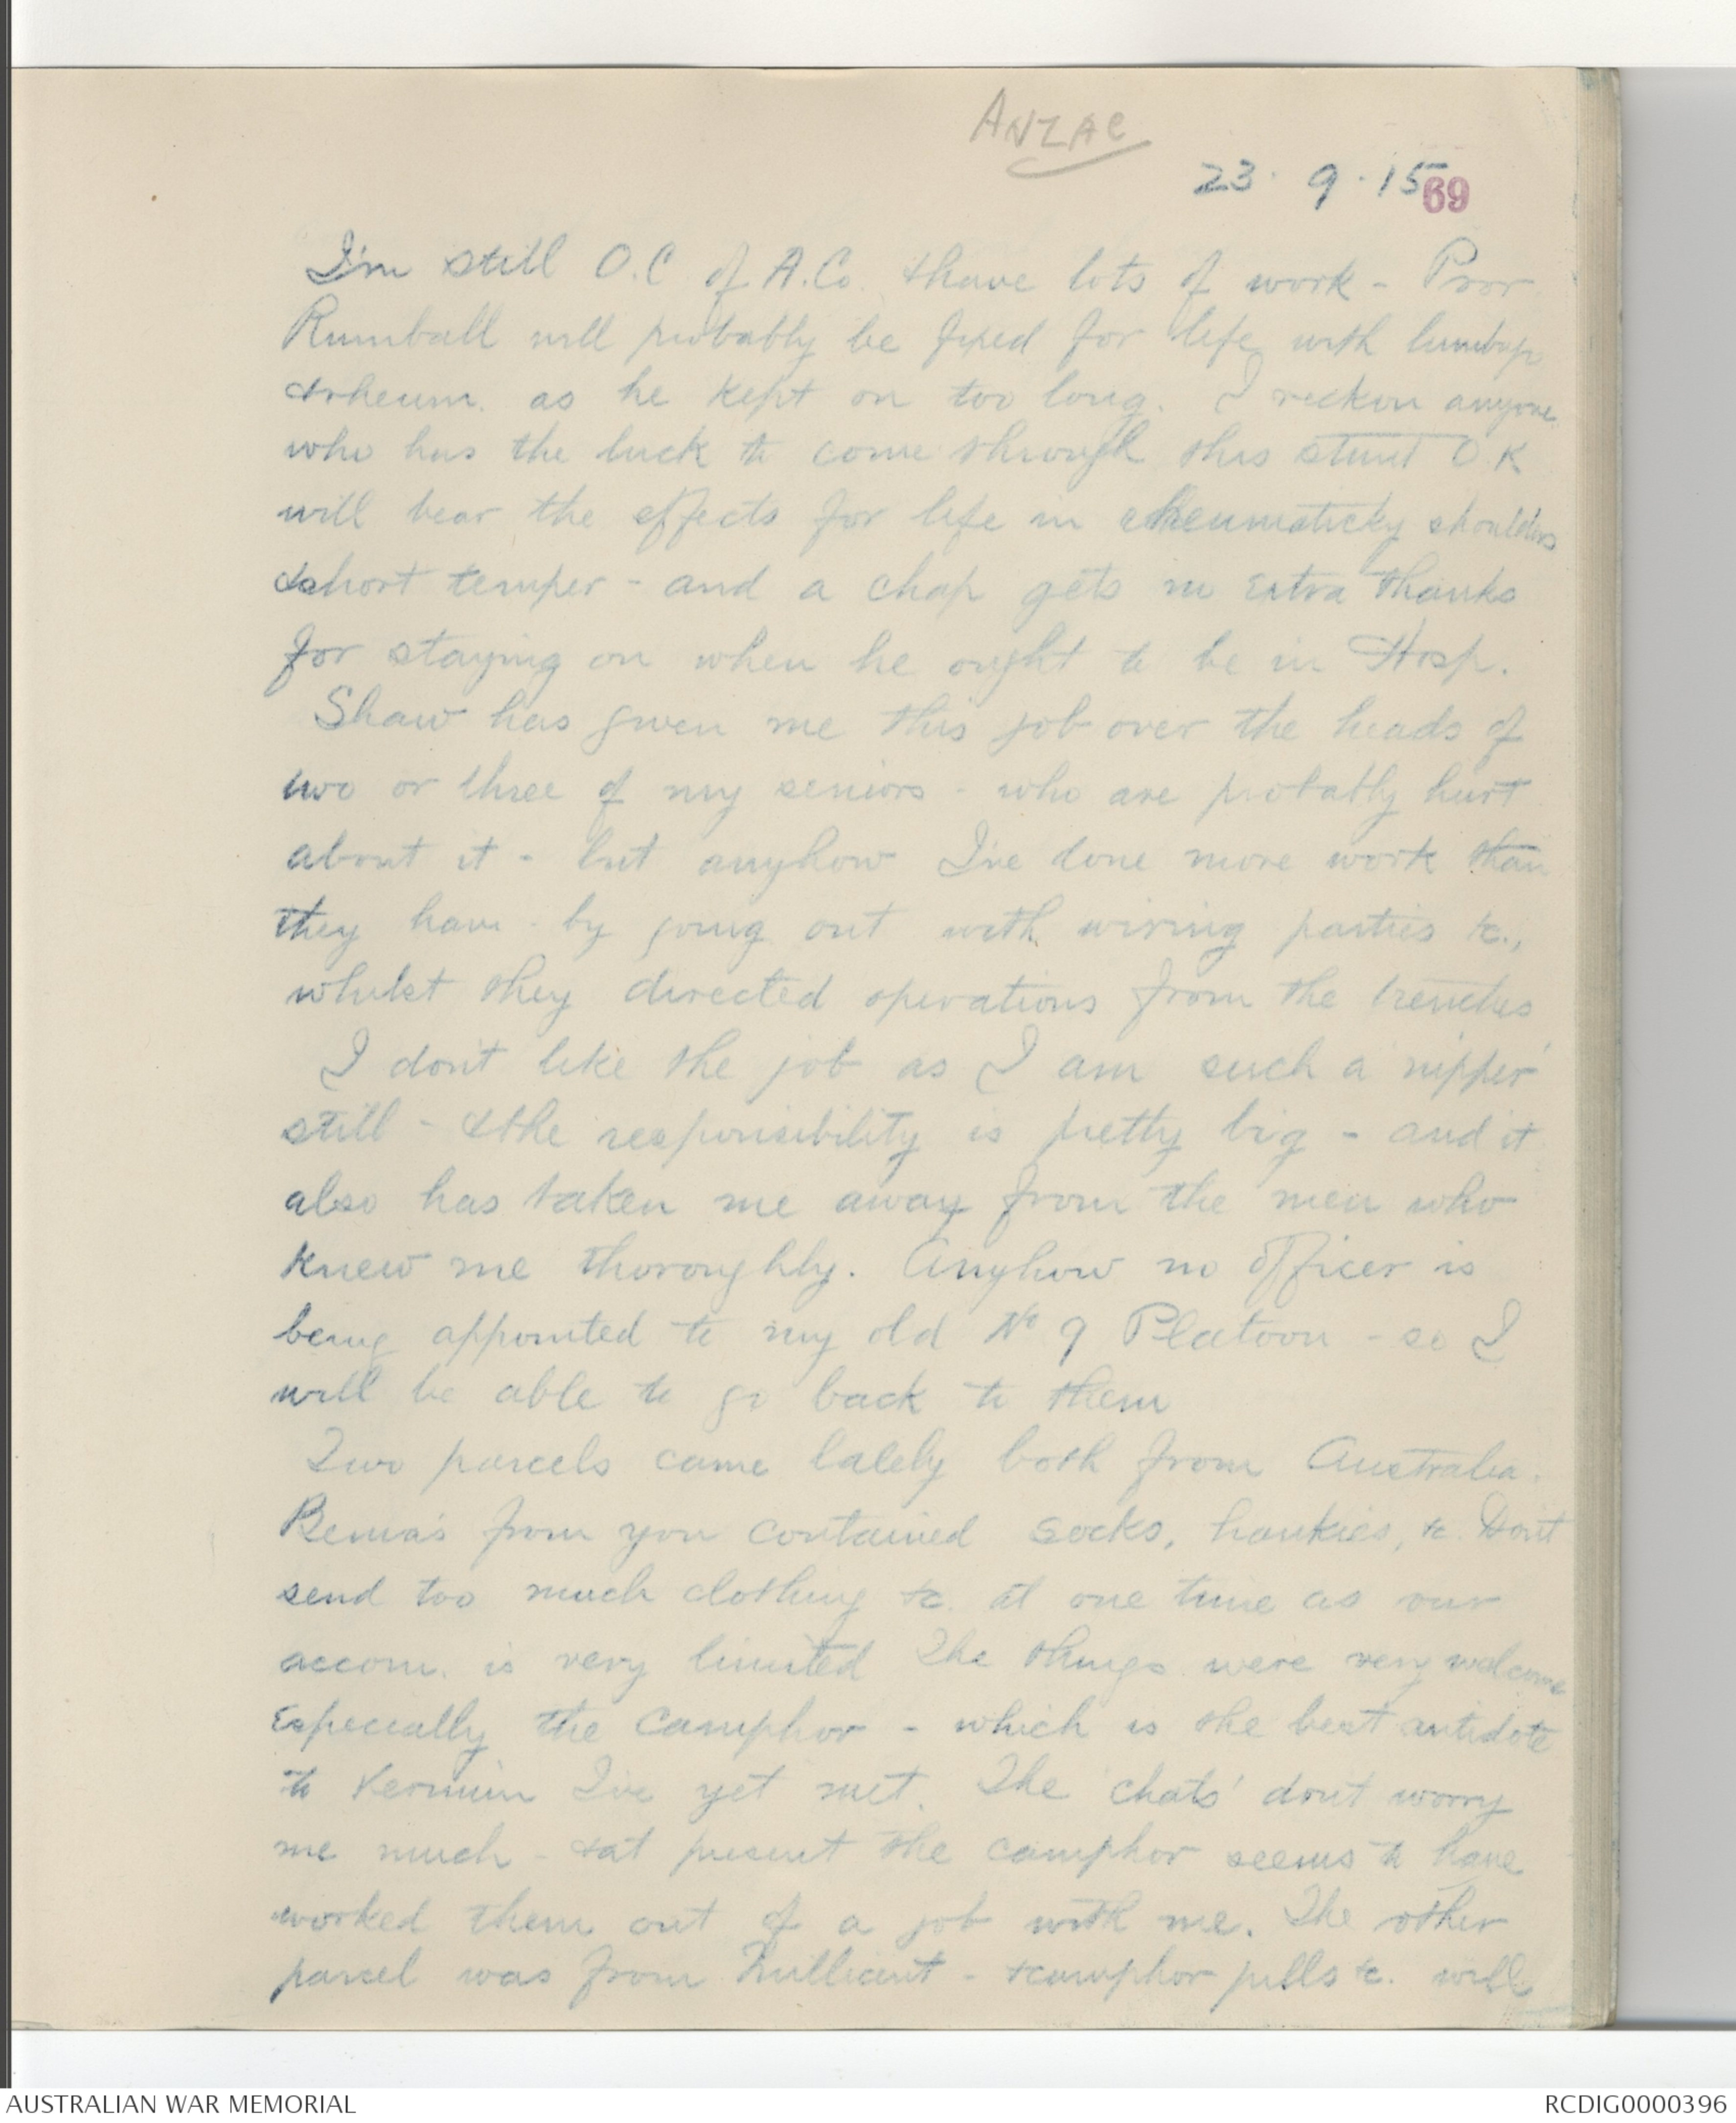 ANZAC
23. 9. 15
69
I'm still O.C of A.Co. & have lots of work - Poor
Rumball will probably be fixed for life with lumbago
& rheum. as he kept on too long. I reckon anyone
who has the luck to come through this stunt O.K
will bear the effects for life in rheumaticky shoulders
& short temper - and a chap gets no extra thanks
for staying on when he ought to be in Hosp.
Shaw has given me this job over the heads of
two or three of my seniors - who are probably hurt
about it - but anyhow I've done more work than
they have - by going out with wiring parties &c.,
whilst they directed operations from the trenches
I don't like the job as I am such a nipper
still - & the responsibility is pretty big - and it
also has taken me away from the men who
knew me thoroughly. Anyhow no officer is
being appointed to my old No 9 Platoon - so I
will be able to go back to them
Two parcels came lately both from Australia.
from you contained socks, hankies, &c. Don't
send too much clothing &c. at one time as our
accom. is very limited The things were very welcome
Especially the Camphor - which is the best antidote
to Vermin I've yet met. The 'chats' don't worry
me much - & at present the camphor seems to have
worked them out of a job with me. The other
parcel was from - & camphor pills &c. will
AUSTRALIAN WAR MEMORIAL
RCDIG0000396